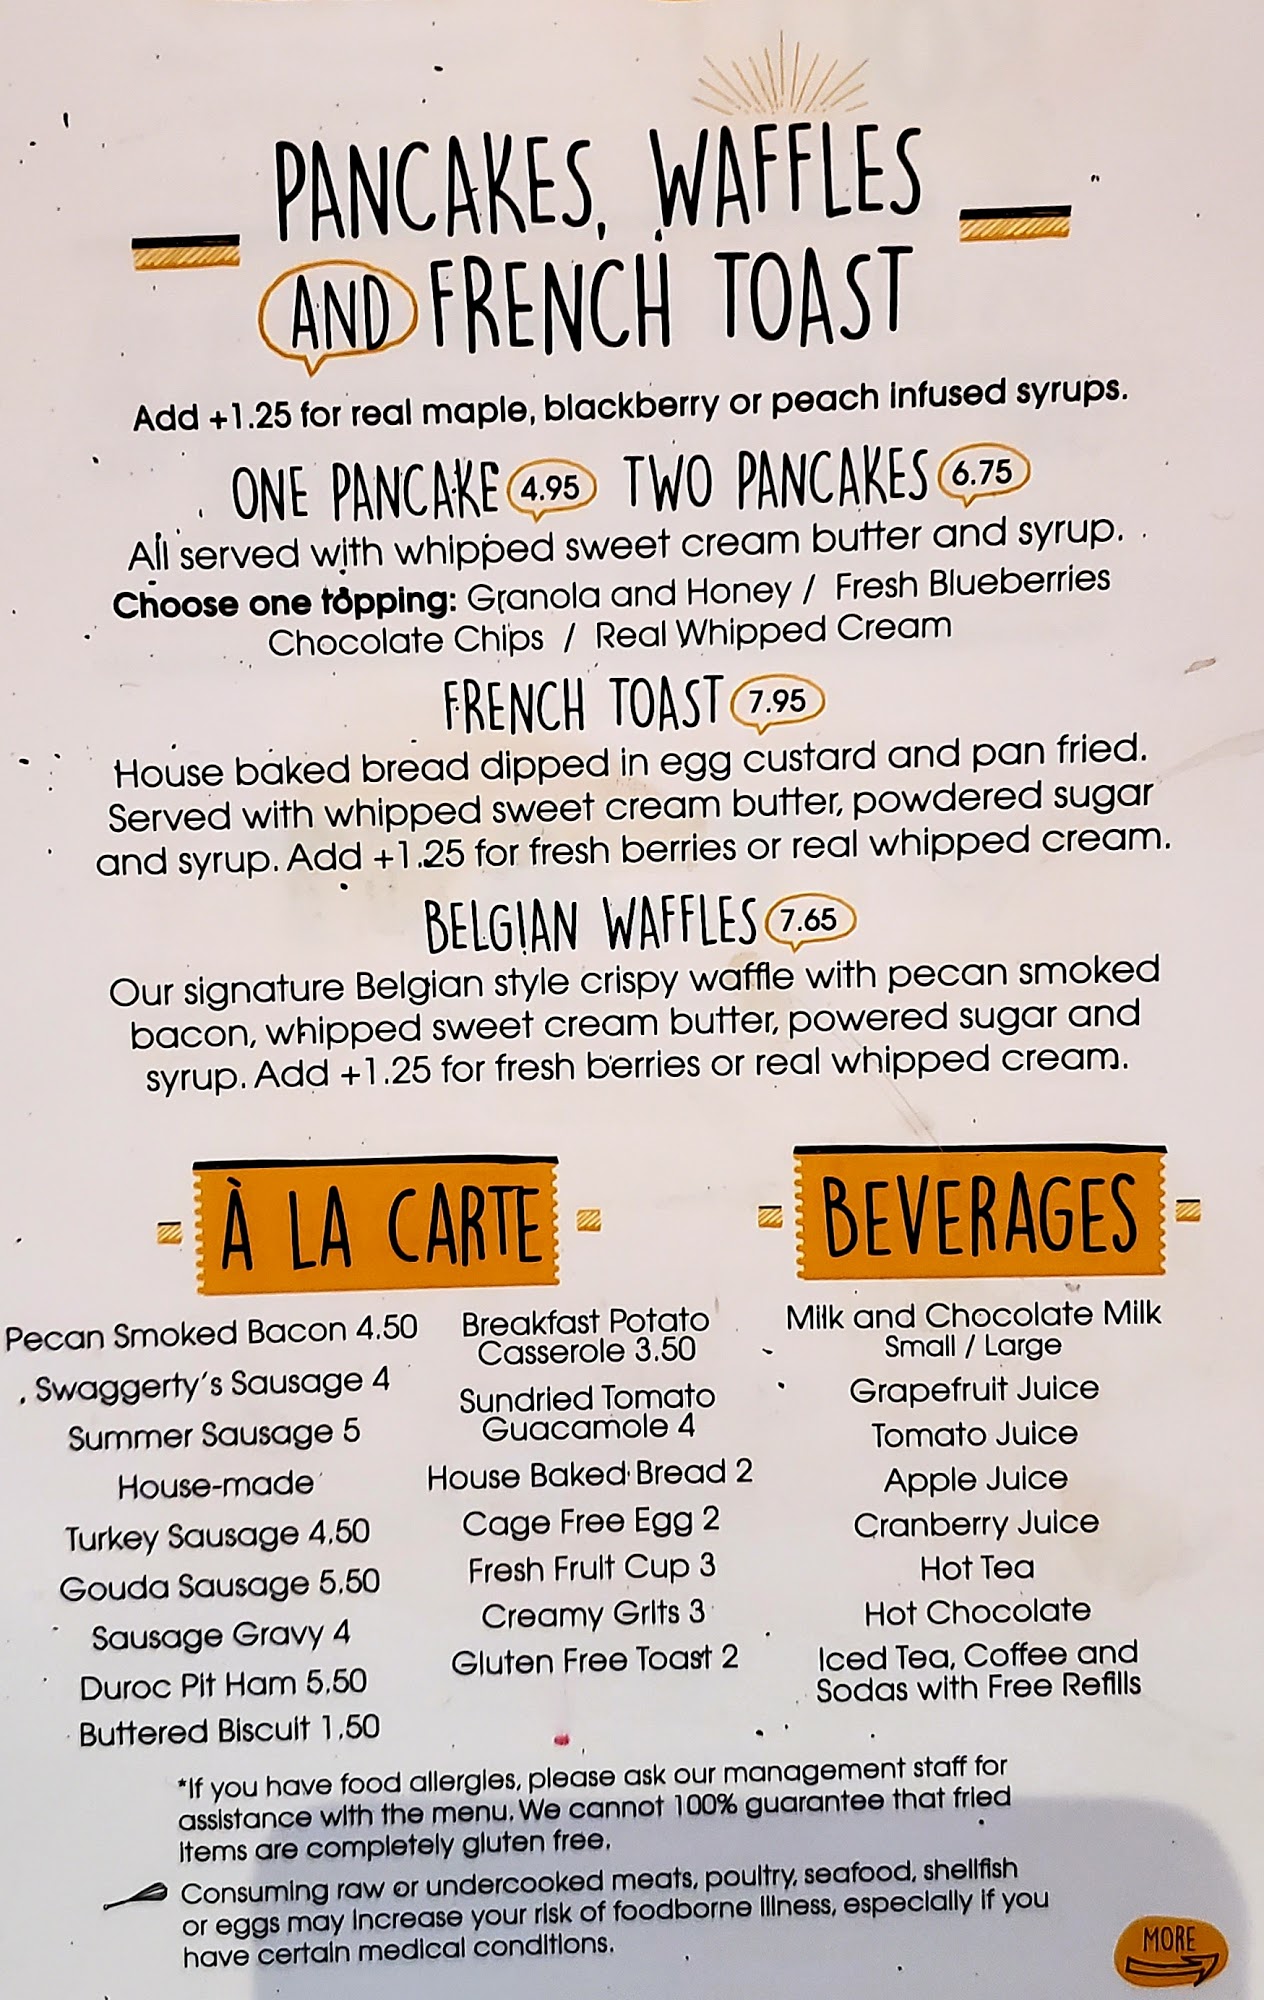 PANCAKES, WAFFLES
AND FRENCH TOAST
Add +1.25 for real maple, blackberry or peach infused syrups.
ONE PANCAKE 4.95 TWO PANCAKES 6.75
All served with whipped sweet cream butter and syrup.
Choose one topping: Granola and Honey / Fresh Blueberries
Chocolate Chips / Real Whipped Cream
FRENCH TOAST 7.95
House baked bread dipped in egg custard and pan fried.
Served with whipped sweet cream butter, powdered sugar
and syrup. Add +1.25 for fresh berries or real whipped cream.
BELGIAN WAFFLES 7.65
Our signature Belgian style crispy waffle with pecan smoked
bacon, whipped sweet cream butter, powered sugar and
syrup. Add +1.25 for fresh berries or real whipped cream.
À LA CARTE
Pecan Smoked Bacon 4.50
Swaggerty's Sausage 4
Summer Sausage 5
House-made
Turkey Sausage 4.50
Gouda Sausage 5.50
Sausage Gravy 4
Duroc Pit Ham 5.50
Buttered Biscuit 1.50
Breakfast Potato
Casserole 3.50
Sundried Tomato
Guacamole 4
House Baked Bread 2
Cage Free Egg 2
Fresh Fruit Cup 3
Creamy Grits 3
Gluten Free Toast 2
BEVERAGES
Milk and Chocolate Milk
Small / Large
Grapefruit Juice
Tomato Juice
Apple Juice
Cranberry Juice
Hot Tea
Hot Chocolate
Iced Tea, Coffee and
Sodas with Free Refills
*If you have food allergies, please ask our management staff for
assistance with the menu. We cannot 100% guarantee that fried
items are completely gluten free.
Consuming raw or undercooked meats, poultry, seafood, shellfish
or eggs may increase your risk of foodborne illness, especially if you
have certain medical conditions.
MORE